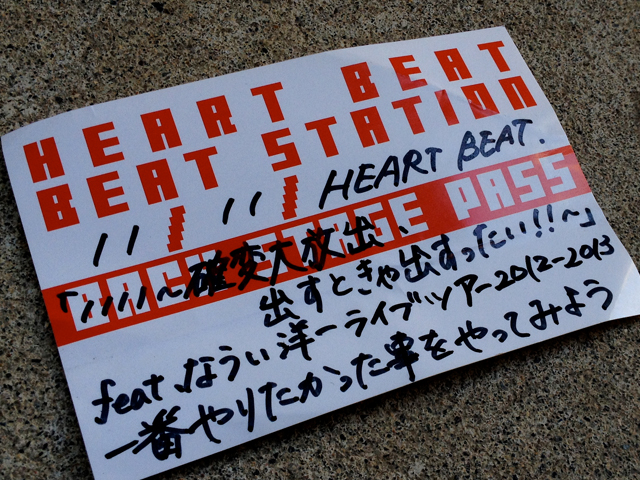 HEART BEAT
BEAT STATION
11/11/HEART BEAT.
BACKSTAGE PASS
「11/11〜確変大放出、
出すときゃ出すったい!!〜」
feat.なうい洋一ライブツアー2012-2013
一番やりたかった事をやってみよう